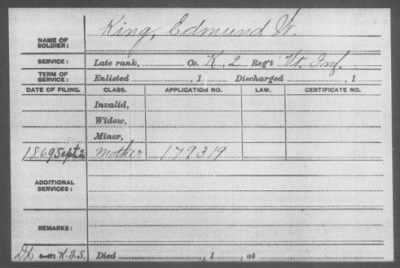 NAME OF SOLDIER: King, Edmund W.
SERVICE: Late rank, Co. K, 2 Reg't Vt. Inf.
TERM OF SERVICE: Enlisted , 1 Discharged , 1
DATE OF FILING. CLASS. APPLICATION NO. LAW. CERTIFICATE NO.
Invalid,
Widow,
Minor,
1869 Sept 2 Mother 172319
ADDITIONAL SERVICES:
REMARKS:
Died , 1 , at